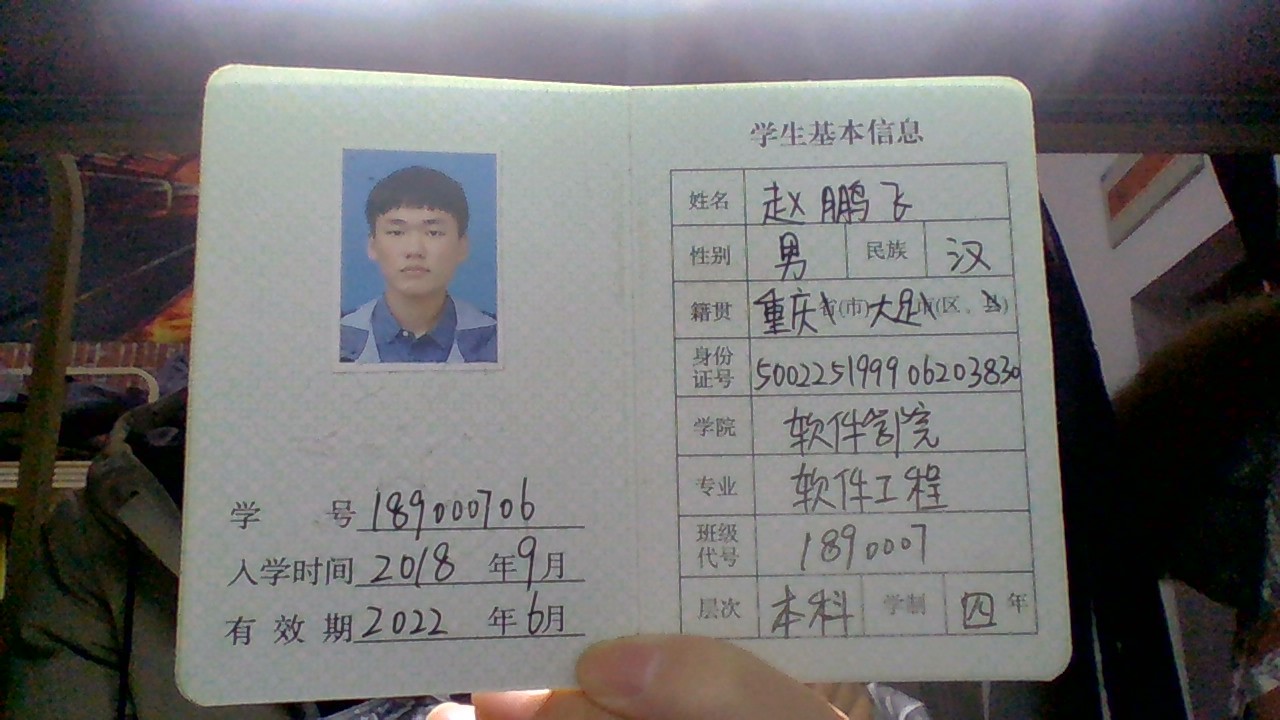 学号 189000706
入学时间 2018 年 9 月
有效期 2022 年 6 月
学生基本信息
姓名 赵鹏飞
性别 男 民族 汉
籍贯 重庆省(市) 大足市(区、县)
身份证号 500225199906203830
学院 软件学院
专业 软件工程
班级代号 1890007
层次 本科 学制 四 年